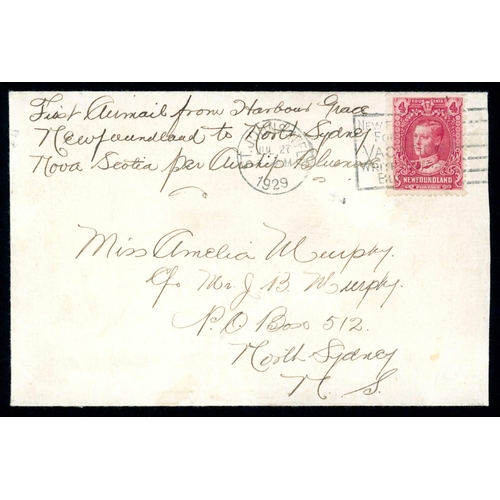 First Airmail from Harbour Grace
Newfoundland to North Sydney
Nova Scotia per Airship Bluenose
JUL 27
1929
4 4
NEWFOUNDLAND
Miss Amelia Murphy.
C/o Mr. J. B. Murphy.
P.O Box 512.
North Sydney
N. S.